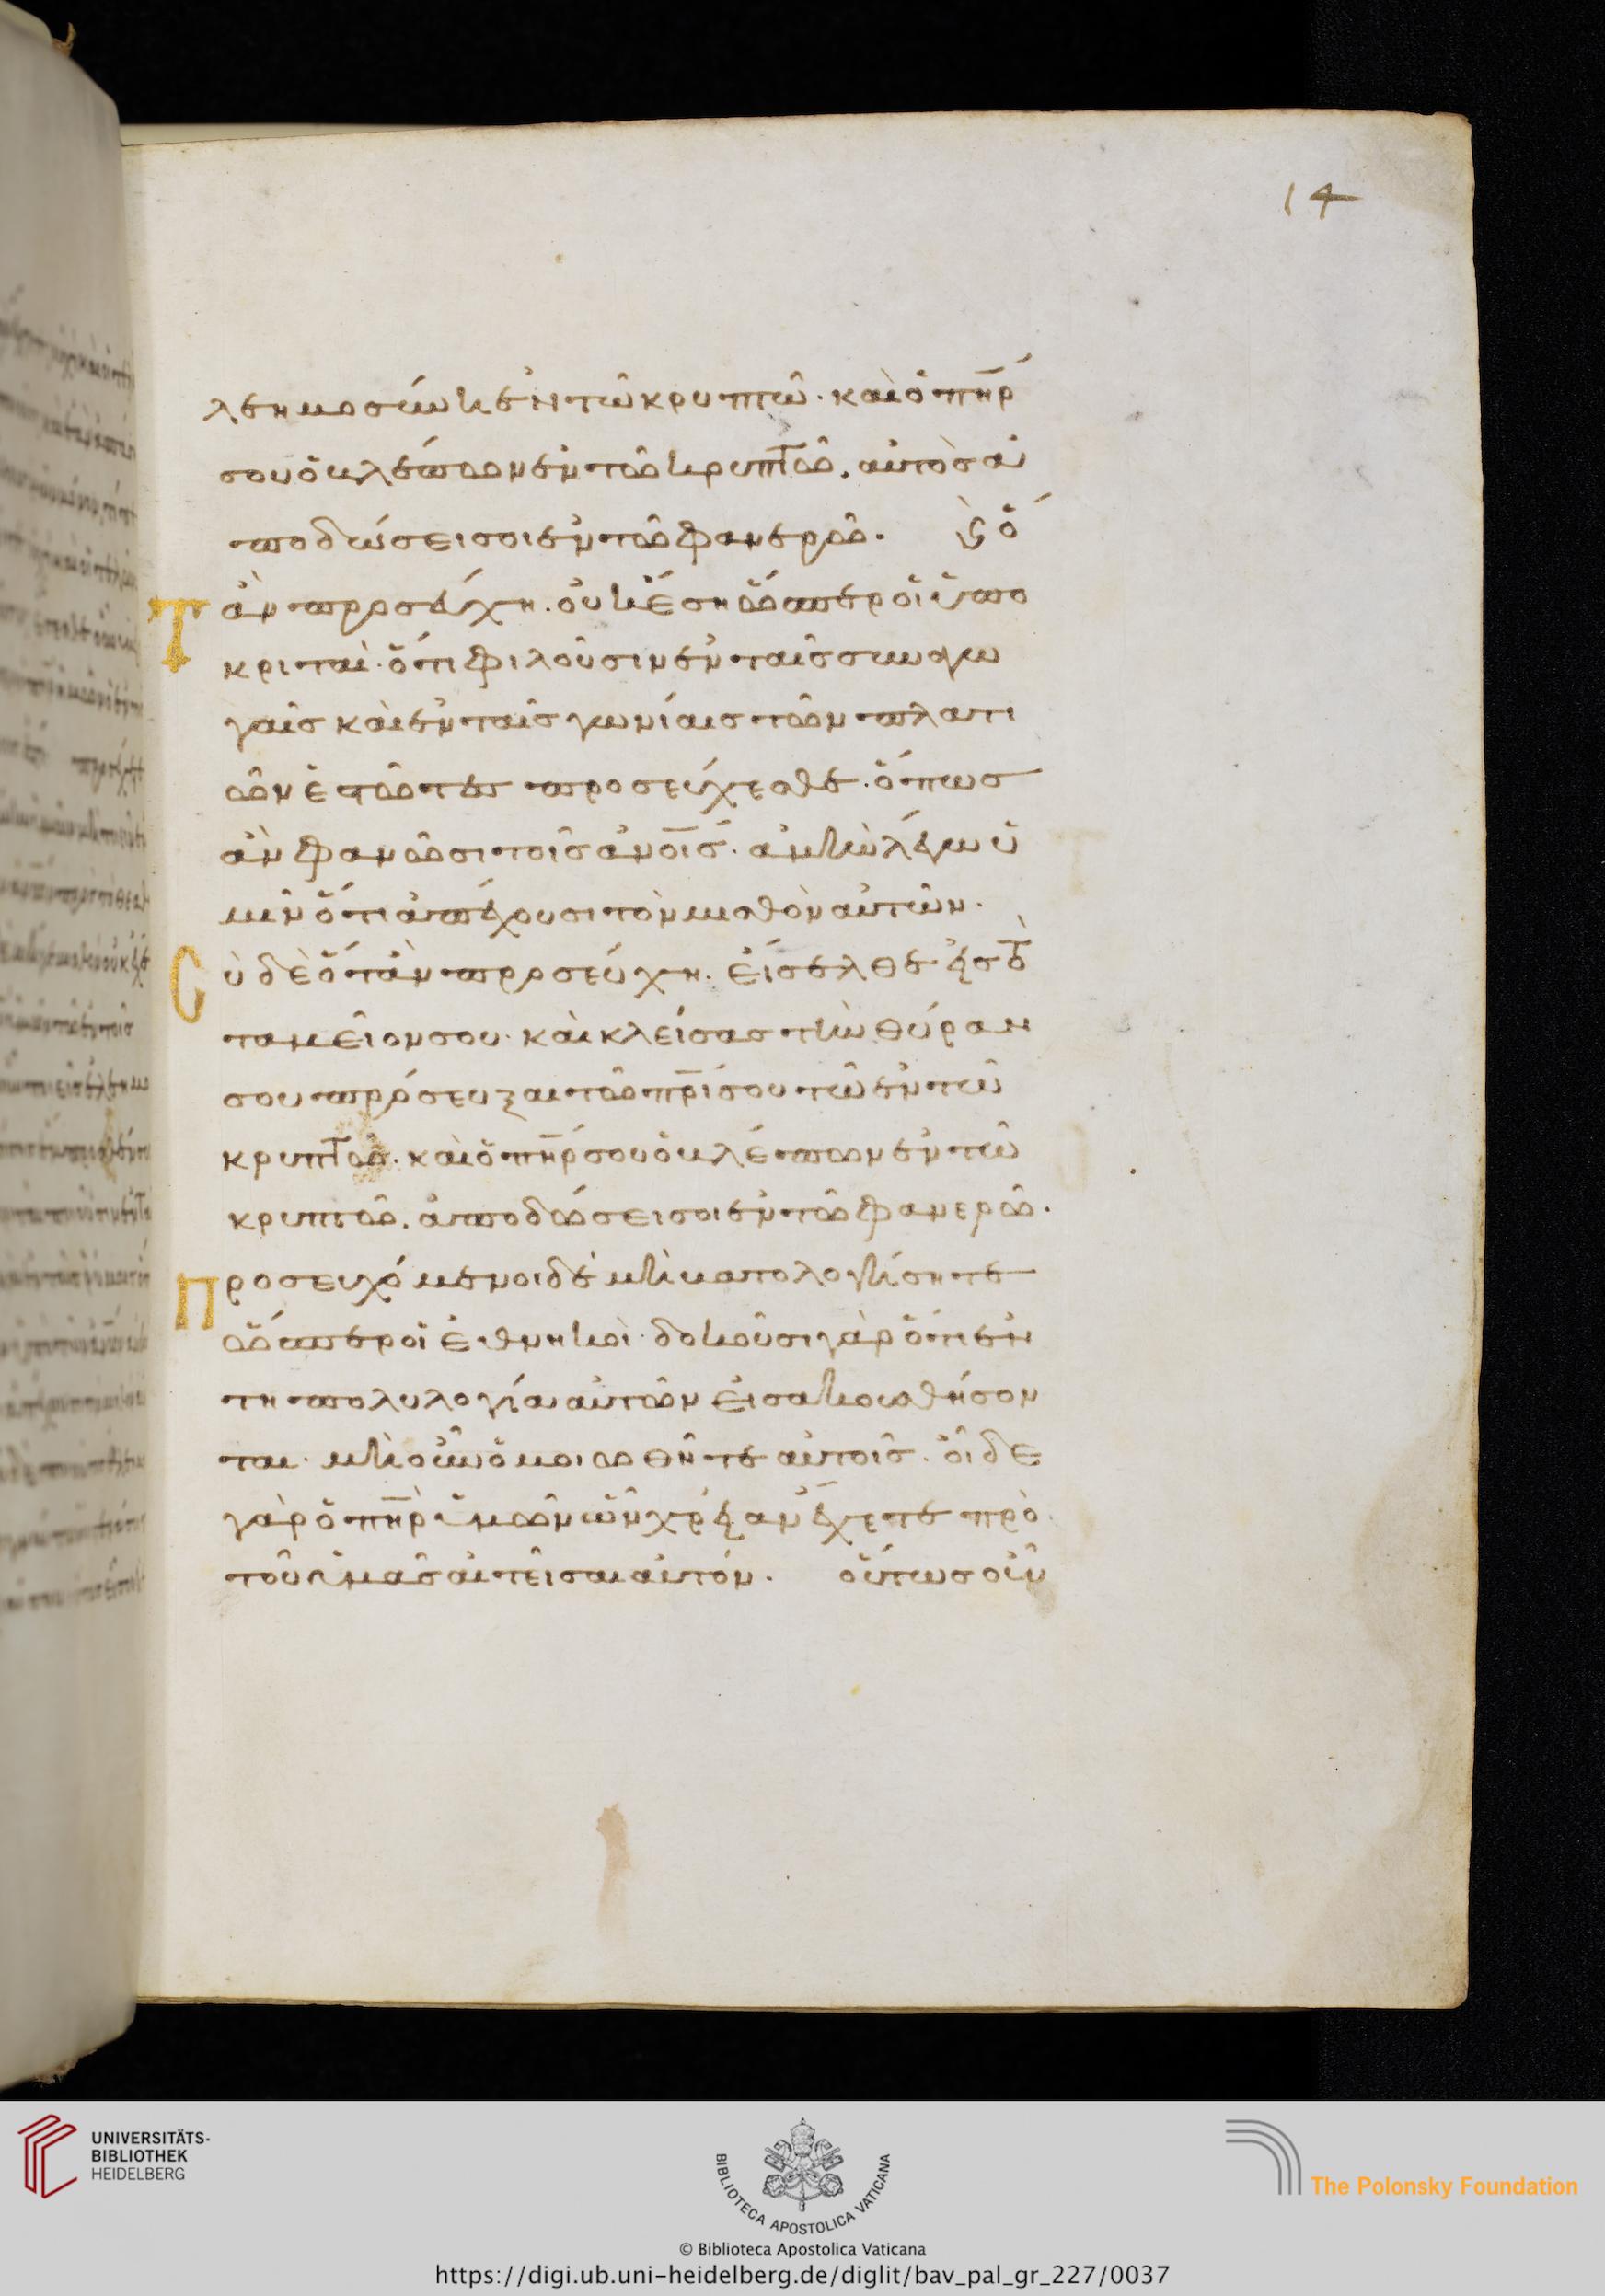 14
λεημοσύνη ἐν τῶ κρυπτῶ· καὶ ὁ πη̅ρ
σου ὁ βλέπων ἐν τῶ κρυπτῶ, αὐτὸς ἀ
ποδώσει σοι ἐν τῶ φανερῶ· ϗ ὅ
Τἀν προσεύχη· οὐκ ἔση ὥσπερ οἱ ὑπο
κριταὶ· ὅτι φιλοῦσιν ἐν ταῖς συναγω
γαῖς καὶ ἐν ταῖς γωνίαις τῶν πλατι
ῶν ἑστῶτες προσεύχεσθε· ὅπως
ἀν φανῶσι τοῖς ἀν̅οις· ἀμὴν λέγω ὑ
μῖν ὅτι ἀπέχουσι τὸν μισθὸν αὐτῶν·
Cὺ δὲ ὅταν προσεύχη· εἴσελθε εἰς τὸ
ταμεῖον σου· καὶ κλείσας τὴν θύραν
σου πρόσευξαι τῶ πρ̅ι σου τῶ ἐν τῶ
κρυπτῶ· καὶ ὁ πη̅ρ σου ὁ βλέπων ἐν τῶ
κρυπτῶ, ἀποδώσει σοι ἐν τῶ φανερῶ·
Προσευχόμενοι δὲ μὴ βαττολογήσητε
ὥσπερ οἱ ἐθνηκοὶ· δοκοῦσι γὰρ ὅτι ἐν
τη πολυλογία αὐτῶν εἰσακουσθήσον
ται· μὴ οὖν ὁμοιωθῆτε αὐτοῖς· οἶδε
γὰρ ὁ πη̅ρ ὑμῶν ὧν χρείαν ἔχετε πρὸ
τοῦ ὑμᾶς αἰτεῖσαι αὐτόν· οὕτως οὖν
UNIVERSITÄTS-
BIBLIOTHEK
HEIDELBERG
BIBLIOTECA APOSTOLICA VATICANA
The Polonsky Foundation
© Biblioteca Apostolica Vaticana
https://digi.ub.uni-heidelberg.de/diglit/bav_pal_gr_227/0037